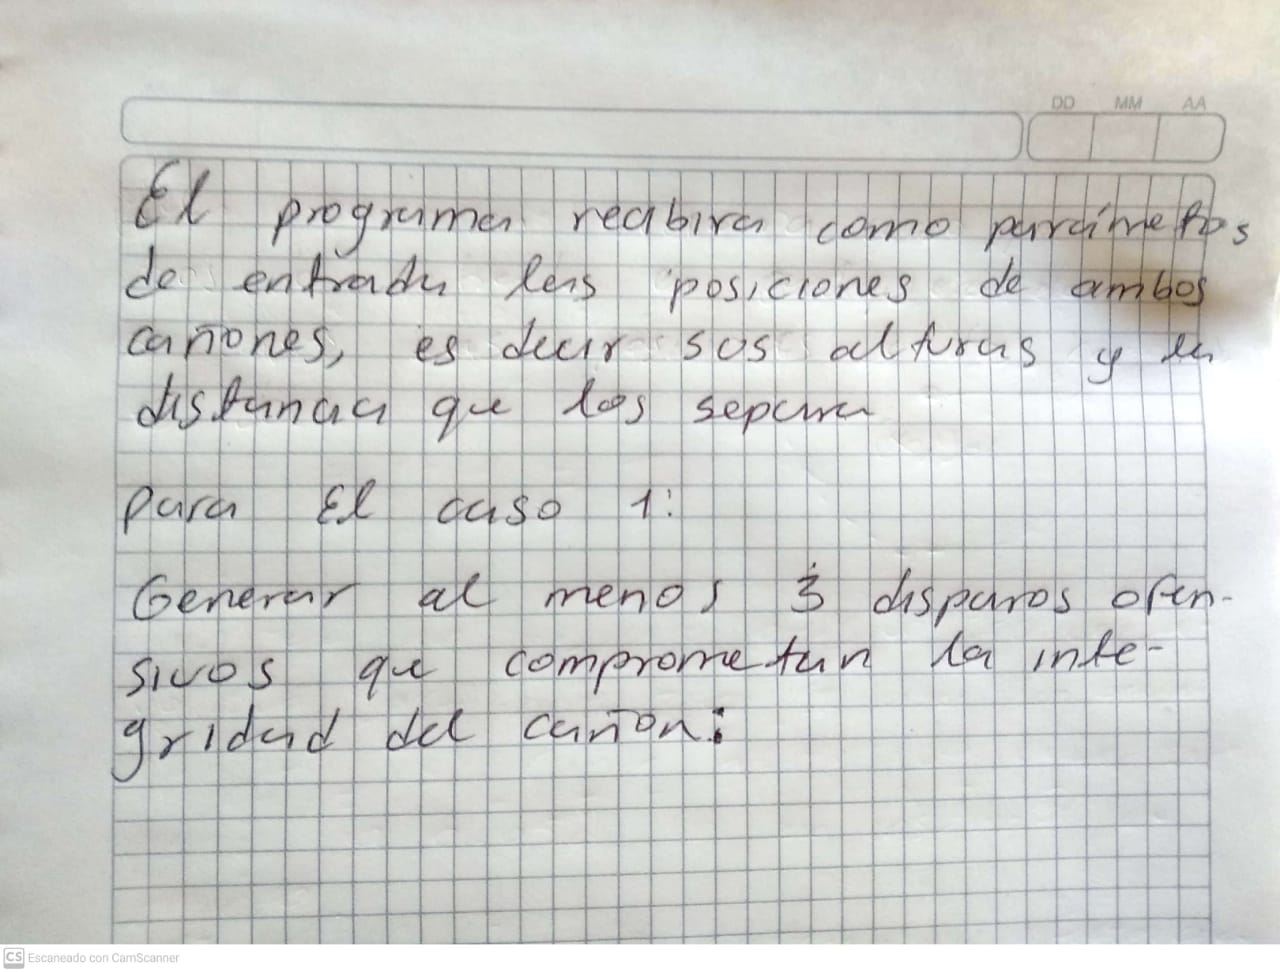 DD MM AA
El programa recibira como parámetros
de entrada las posiciones de ambos
cañones, es decir sus alturas y la
distancia que los separa
para El caso 1:
Generar al menos 3 disparos ofen-
sivos que comprometan la inte-
gridad del cañon:
CS Escaneado con CamScanner